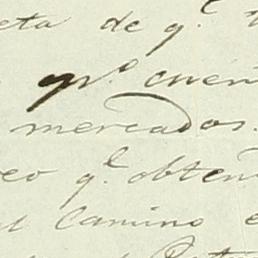 eta de q.^e
n.^o cuen
mercados.
eo q.^e obten
el Camino e